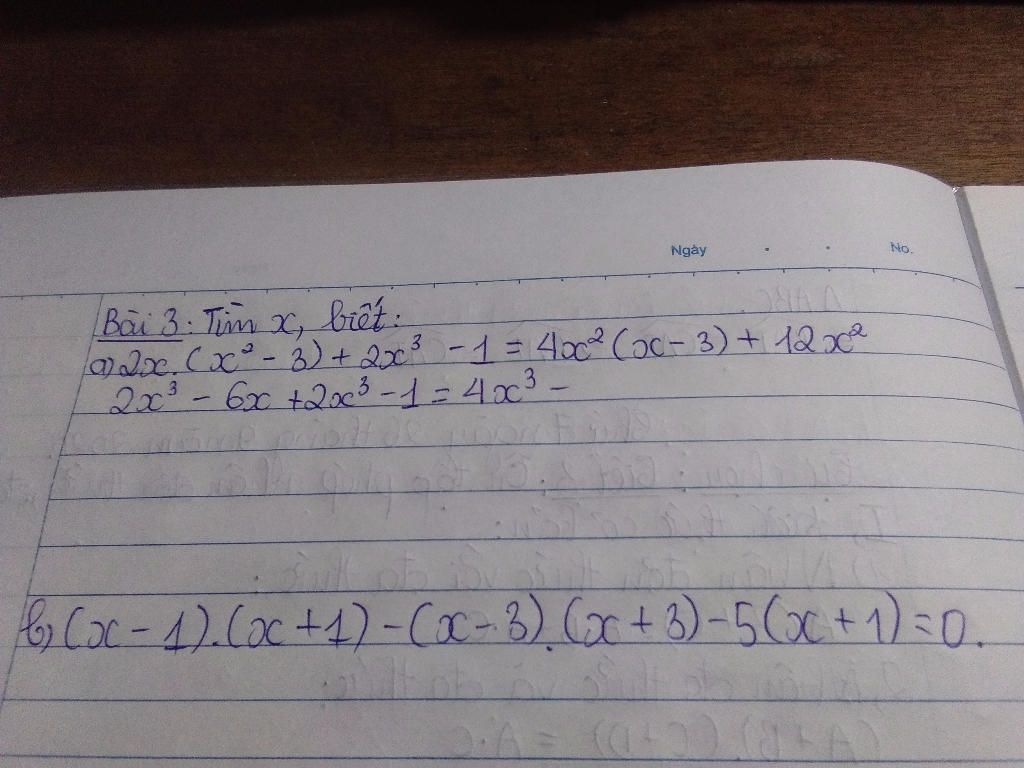 Ngày . . No.
Bài 3: Tìm x, biết:
a) 2x.(x² - 3) + 2x³ - 1 = 4x² (x - 3) + 12x²
2x³ - 6x + 2x³ - 1 = 4x³ -
b) (x - 1).(x + 1) - (x - 3).(x + 3) - 5(x + 1) = 0.